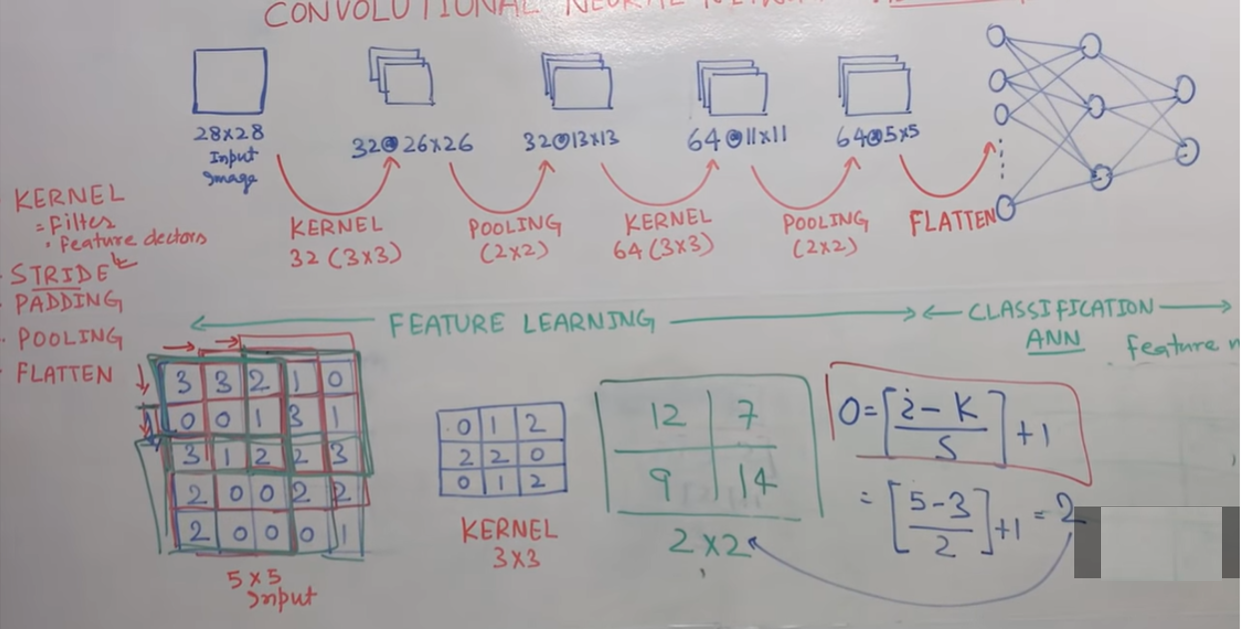 CONVOLUTIONAL NEURAL NETWORK
28x28
Input
Image
32@26x26
32@13x13
64@11x11
64@5x5
KERNEL
32 (3x3)
POOLING
(2x2)
KERNEL
64 (3x3)
POOLING
(2x2)
FLATTEN
KERNEL
= Filter
• Feature dectors
- STRIDE
- PADDING
- POOLING
- FLATTEN
FEATURE LEARNING
CLASSIFICATION
ANN
feature
3 3 2 1 0
0 0 1 3 1
3 1 2 2 3
2 0 0 2 2
2 0 0 0 1
5x5
Input
0 1 2
2 2 0
0 1 2
KERNEL
3x3
12 7
9 14
2x2
O=[i-K/S]+1
=[5-3/2]+1=2